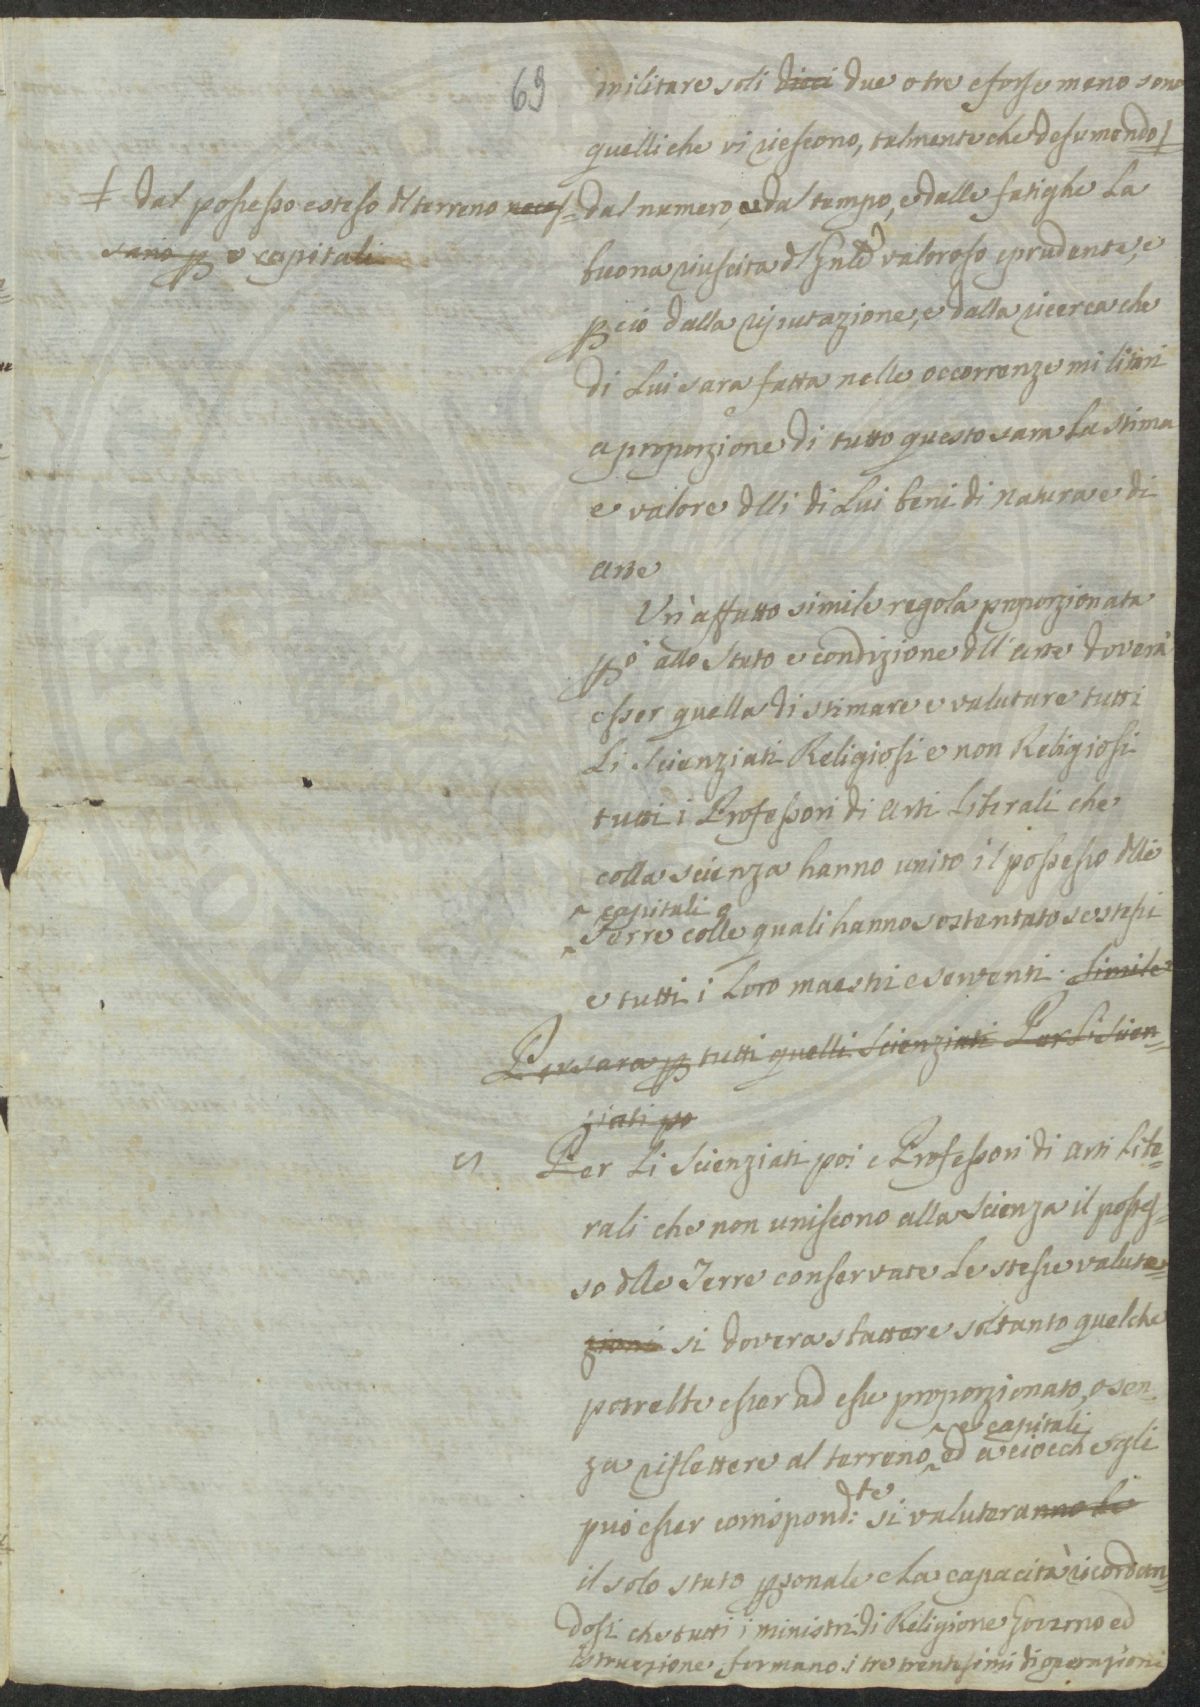 69
militare soli dieci due o tre e forse meno sono
quelli che vi riescono, talmente che desumendo ‡
‡ dal possesso esteso dl terreno neces-
sario p e capitali
dal numero, e dal tempo, e dalle fatighe La
buona riuscita d'un valoroso e prudente, e
p ciò dalla riputazione, e dalla ricerca che
di Lui sara fatta nelle occorrenze militari
a proporzione di tutto questo sara La Stima
e valore dlli di Lui beni di natura e di
arte
Un'affatto simile regola proporzionata
pò allo Stato e condizione dll'arte doverà
esser quella di stimare e valutare tutti
Li Scienziati Religiosi e non Religiosi
tutti i Professori di arti Liberali che
colla scienza hanno unito il possesso dlle
capitali e
Terre colle quali hanno sostentato se stessi
e tutti i Loro maestri e serventi. Simile
Per sara p tutti quelli Scienziati Per Li Scien-
ziati po
5 Per Li Scienziati poi e Professori di arti Libe-
rali che non uniscono alla Scienza il posses-
so dlle Terre conservate Le stesse valuta-
zioni si dovera sbattere soltanto quel che
potrebbe esser ad esse proporzionato, o sen-
e capitali
za riflettere al terreno, ed a ciocche gli
può esser corrispond:te si valuteranno Li
il solo stato psonale e La capacità ricordan-
dosi che tutti i ministri di Religione Governo ed
Istruzione formano i tre trentesimi di operazioni